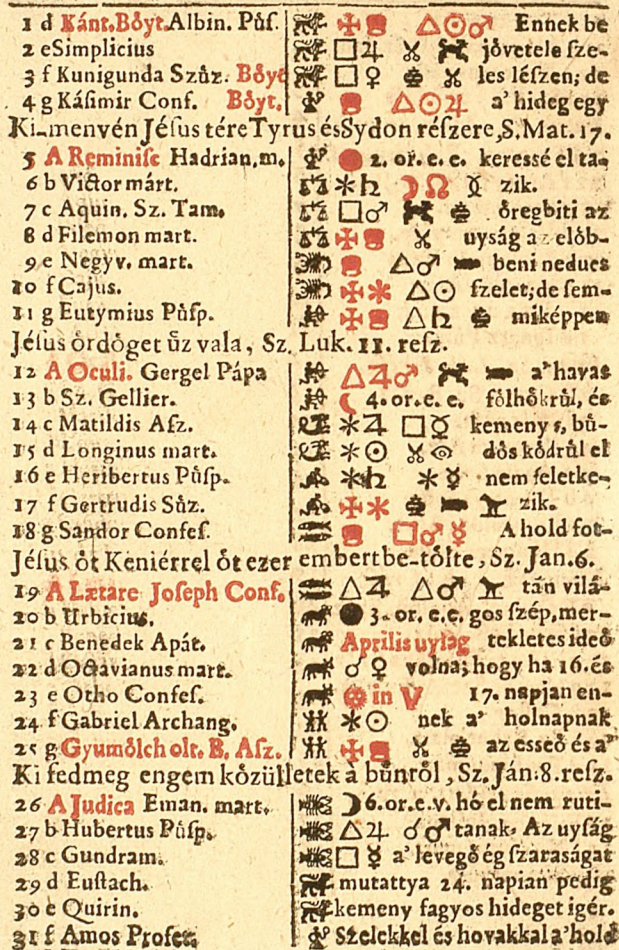 1 d Kánt. Bőyt. Albin. Půſ. Ennek be
2 e Simplicius jővetele ſze-
3 f Kunigunda Szůz. Bőyt les léſzen; de
4 g Káſimir Conf. Bőyt, a' hideg egy
Ki-menvén Jéſus tére Tyrus és Sydon réſzere, S. Mat. 17.
5 A Reminiſc Hadrian, m. 2. or. e. e. keressé el ta-
6 b Victor márt. zik.
7 c Aquin. Sz. Tam. őregbiti az
8 d Filemon mart. uyság az előb-
9 e Negyv. mart. beni nedues
10 f Cajus. ſzelet; de ſem-
11 g Eutymius Půſp. miképpen
Jéſus őrdőget ůz vala, Sz. Luk. 11. reſz.
12 A Oculi. Gergel Pápa a' havas
13 b Sz. Gellier. 4. or. e. e. főlhőkrůl, és
14 c Matildis Aſz. kemeny s, bů-
15 d Longinus mart. dős kődrůl el
16 e Heribertus Půſp. nem feletke-
17 f Gertrudis Sůz. zik.
18 g Sandor Confeſ. A hold fot-
Jéſus őt Keniérrel őt ezer embert be-tőlte, Sz. Jan. 6.
19 A Lætare Joſeph Conf. tán vilá-
20 b Urbicius. 3. or. e. e. gos ſzép, mer-
21 c Benedek Apát. Aprilis uyſág tekletes ideő
22 d Octavianus mart. volna; hogy ha 16. és
23 e Otho Confeſ. in V 17. napjan en-
24 f Gabriel Archang. nek a' holnapnak
25 g Gyumőlch olt. B. Aſz. az esső és a'
Ki fedmeg engem kőzůlletek a bůnről, Sz. Ján. 8. reſz.
26 A Judica Eman. mart. 6. or. e. v. hó el nem ruti-
27 b Hubertus Půſp. tanak. Az uyſág
28 c Gundram. a' levegő ég ſzaraságat
29 d Euſtach. mutattya 24. napian pedig
30 e Quirin. kemeny fagyos hideget igér.
31 f Amos Profet. Szelekkel és hovakkal a' hold